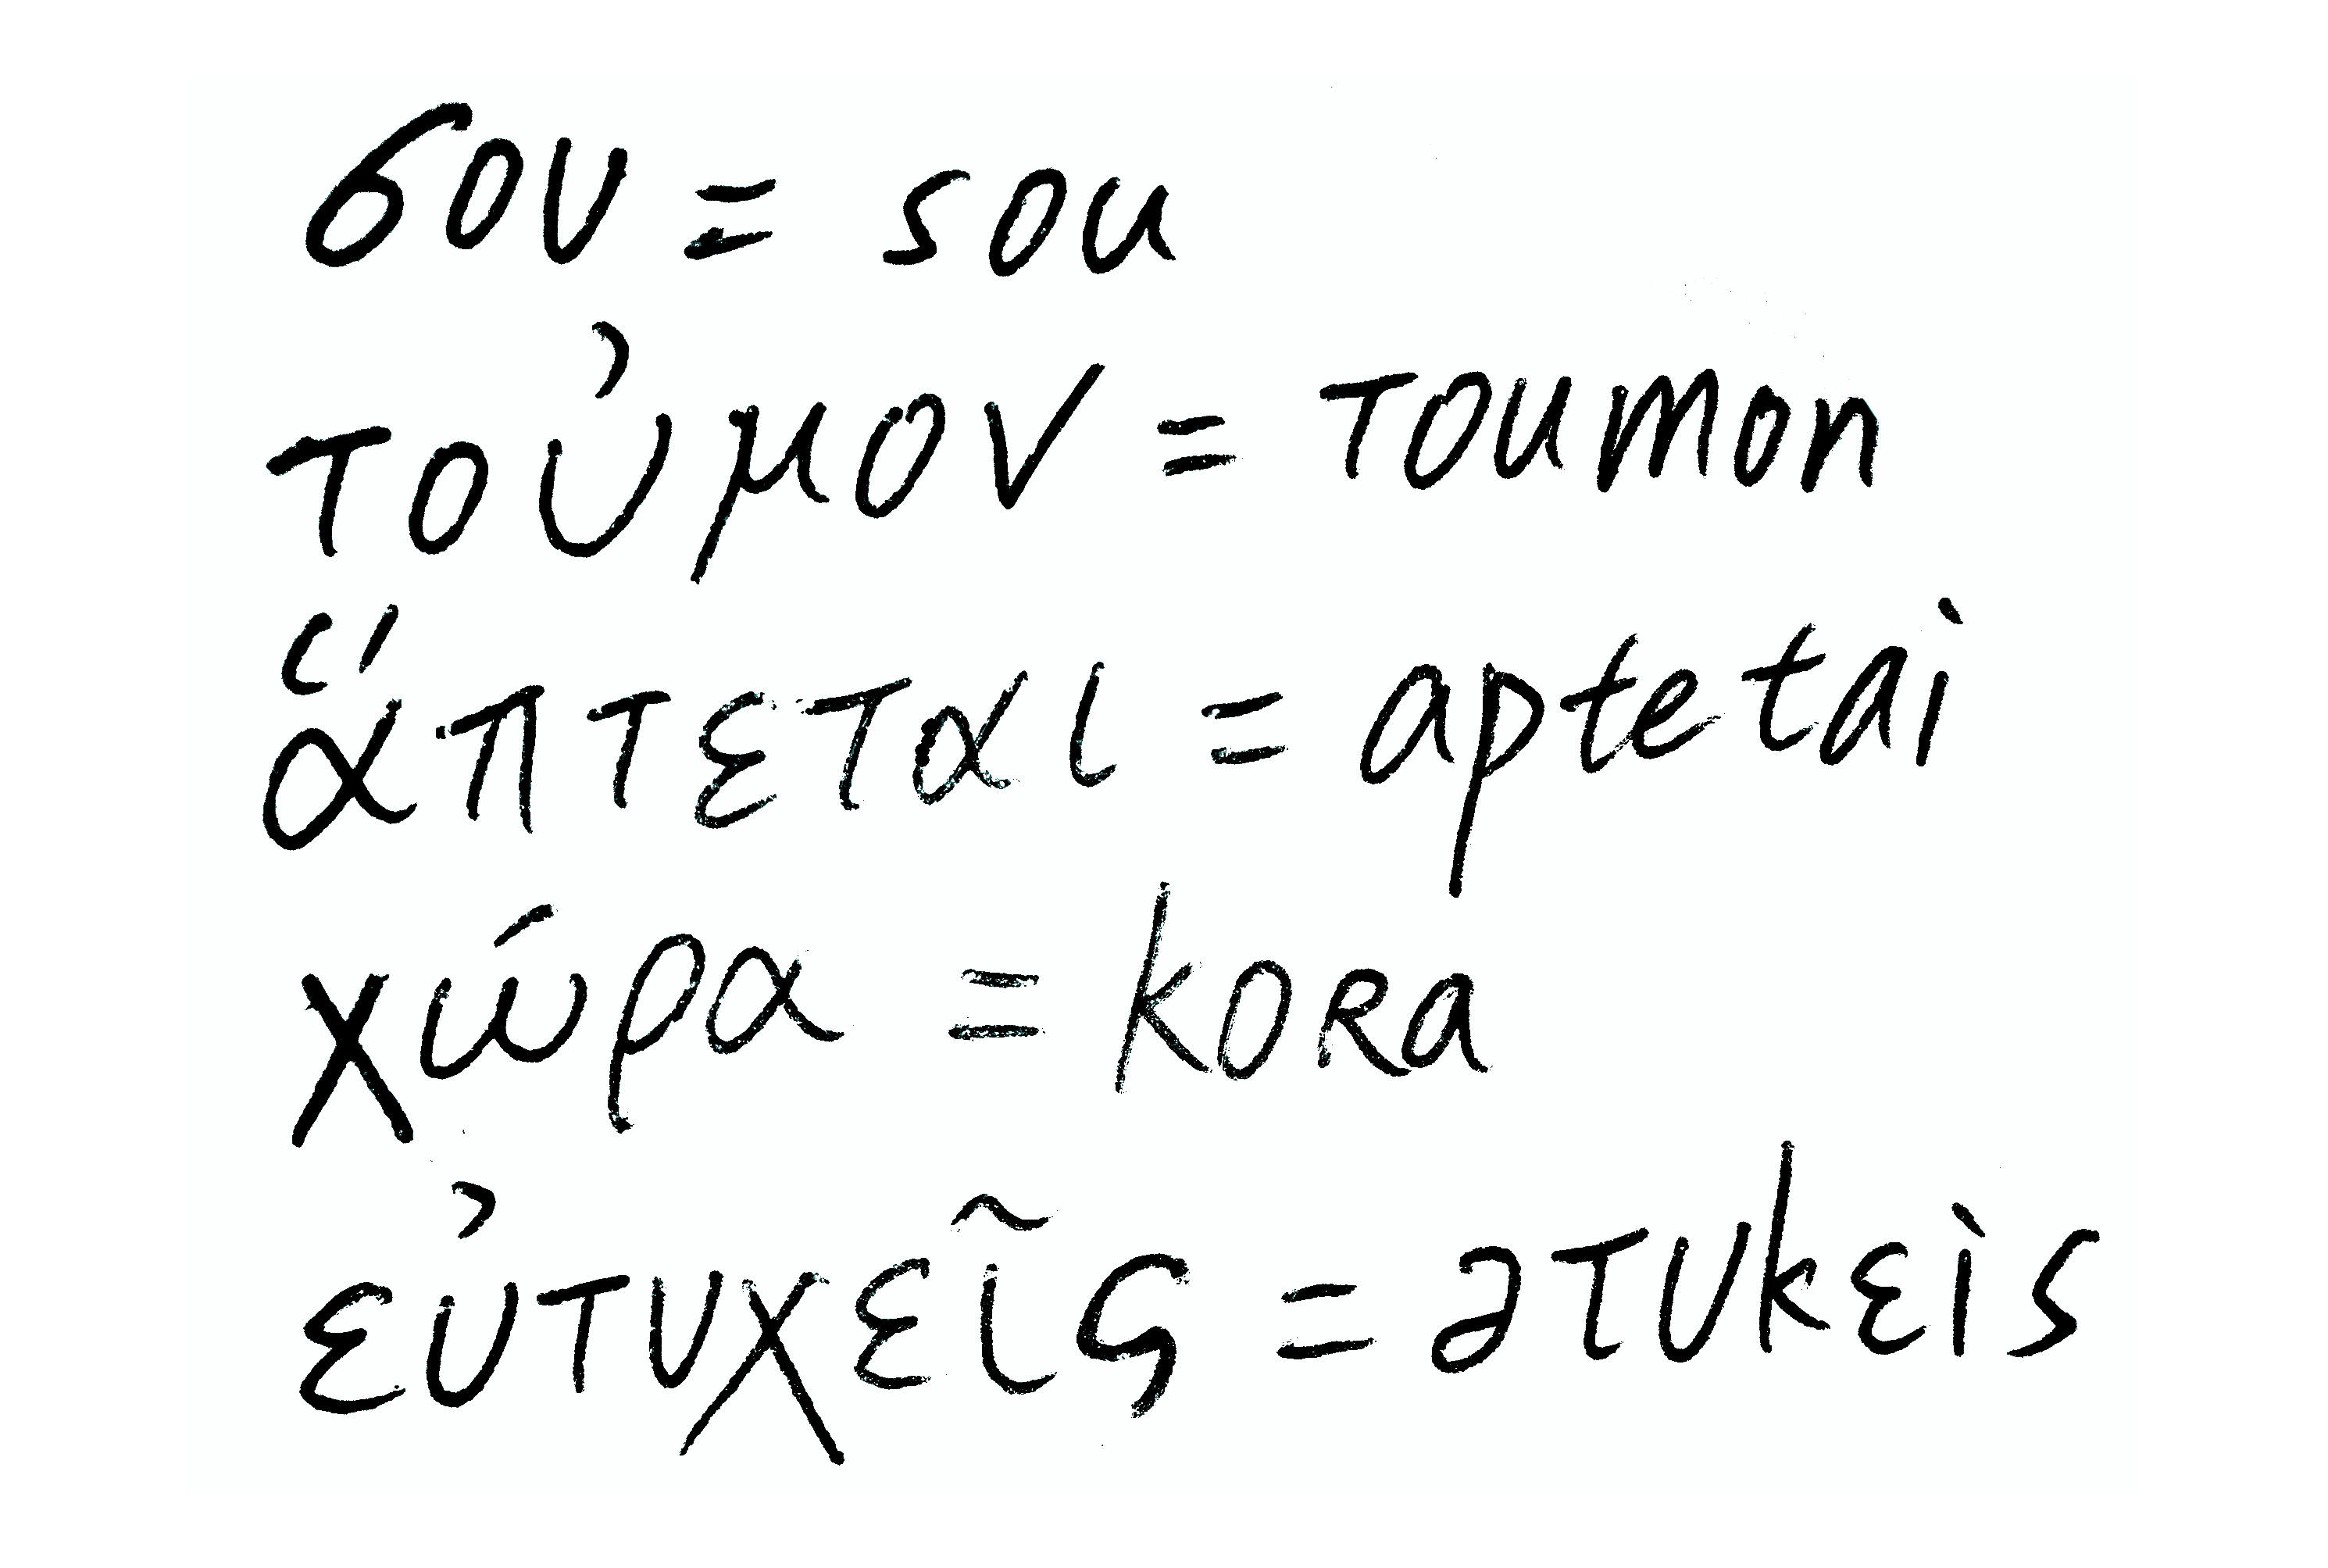 σου = sou
τοὐμον = τoumon
ἅπτεται = aptetai
χώρα = kORa
εὐτυχεῖς = ∂τυkεis